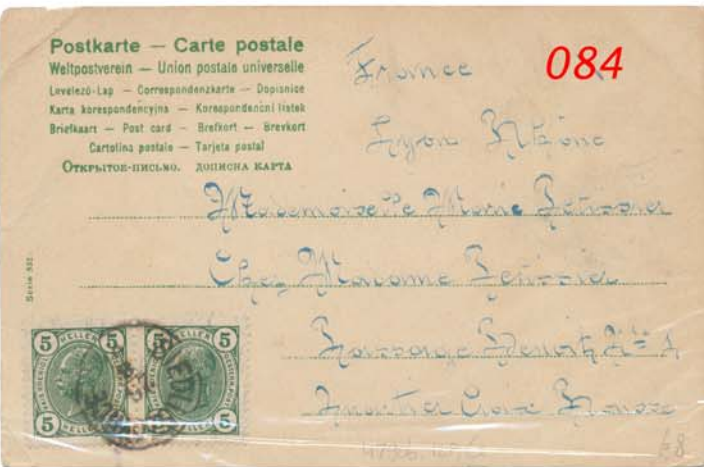 Postkarte — Carte postale
Weltpostverein — Union postale universelle
Levelező-Lap — Correspondenzkarte — Dopisnice
Karta korespondencyjna — Korespondenční lístek
Briefkaart — Post card — Brefkort — Brevkort
Cartolina postale — Tarjeta postal
Открытое-письмо. дописна карта
084
France
Lyon Rhône
Mademoiselle Marie
Chez Madame
Passage Benoit No 1
Quartier Croix Rousse
Serie 332.
5 HELLER 5
5 HELLER 5
5 5
68